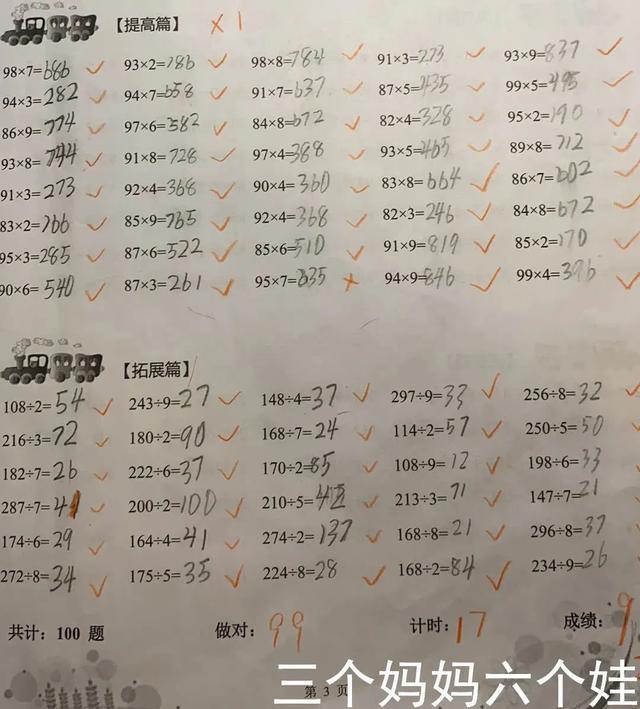 【提高篇】 ×1
98×7=686 93×2=186 98×8=784 91×3=273 93×9=837
94×3=282 94×7=658 91×7=637 87×5=435 99×5=495
86×9=774 97×6=582 84×8=672 82×4=328 95×2=190
93×8=744 91×8=728 97×4=388 93×5=465 89×8=712
91×3=273 92×4=368 90×4=360 83×8=664 86×7=602
83×2=166 85×9=765 92×4=368 82×3=246 84×8=672
95×3=285 87×6=522 85×6=510 91×9=819 85×2=170
90×6=540 87×3=261 95×7=635 94×9=846 99×4=396
【拓展篇】
108÷2=54 243÷9=27 148÷4=37 297÷9=33 256÷8=32
216÷3=72 180÷2=90 168÷7=24 114÷2=57 250÷5=50
182÷7=26 222÷6=37 170÷2=85 108÷9=12 198÷6=33
287÷7=41 200÷2=100 210÷5=42 213÷3=71 147÷7=21
174÷6=29 164÷4=41 274÷2=137 168÷8=21 296÷8=37
272÷8=34 175÷5=35 224÷8=28 168÷2=84 234÷9=26
共计：100 题 做对：99 计时：17 成绩：9
第 3 页
三个妈妈六个娃